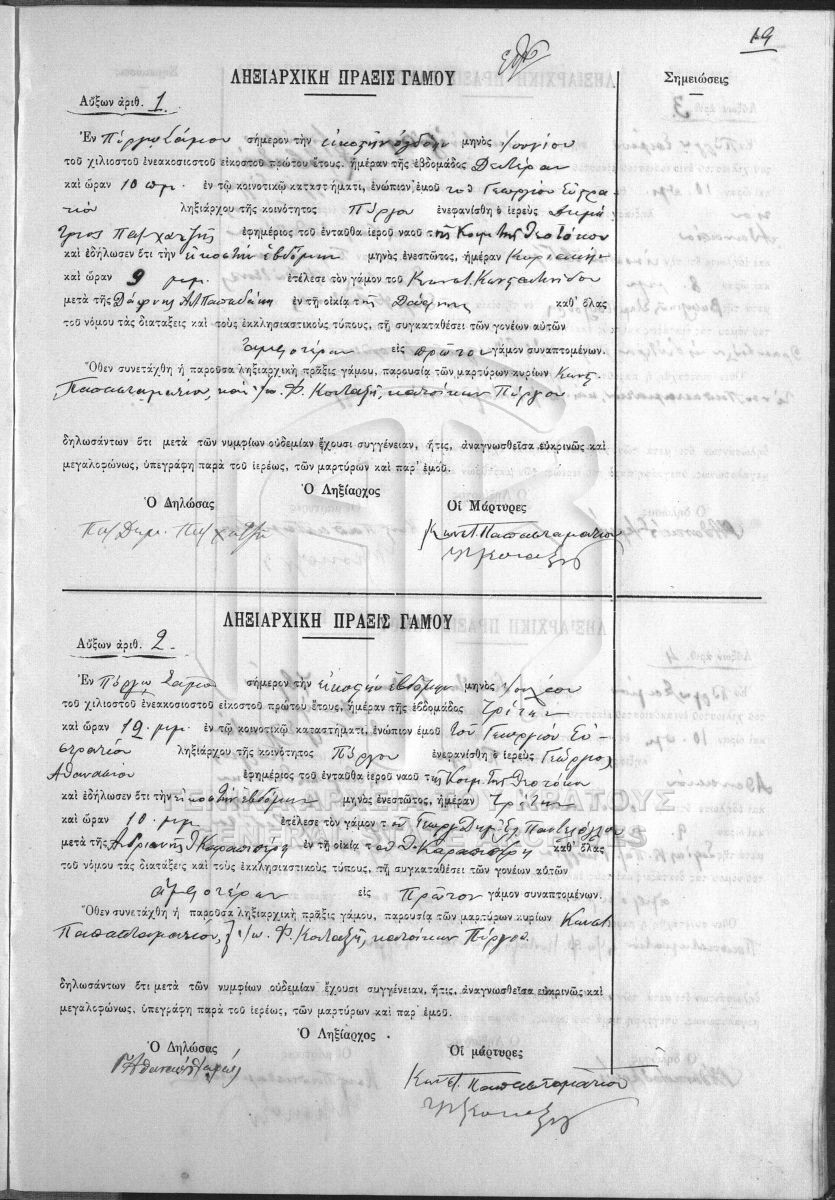 19
ΛΗΞΙΑΡΧΙΚΗ ΠΡΑΞΙΣ ΓΑΜΟΥ
Σημειώσεις
Αὔξων ἀριθ. 1.
Ἐν Πύργῳ Σάμου σήμερον τὴν εἰκοστὴν ὀγδόην μηνὸς Ἰουνίου
τοῦ χιλιοστοῦ ἐνεακοσιοστοῦ εἰκοστοῦ πρώτου ἔτους, ἡμέραν τῆς ἑβδομάδος Δευτέραν
καὶ ὥραν 10 πμ. ἐν τῷ κοινοτικῷ καταστήματι, ἐνώπιον ἐμοῦ τοῦ Γεωργίου Εὐστρα
τίου ληξιάρχου τῆς κοινότητος Πύργου ἐνεφανίσθη ὁ ἱερεὺς Δημή
τριος Παπχατζῆς ἐφημέριος τοῦ ἐνταῦθα ἱεροῦ ναοῦ τῆς Κοιμ. τῆς Θεοτόκου
καὶ ἐδήλωσεν ὅτι τὴν εἰκοστὴν ἑβδόμην μηνὸς ἐνεστῶτος, ἡμέραν Κυριακὴν
καὶ ὥραν 9 μμ. ἐτέλεσε τὸν γάμον τοῦ Κωνστ. Κωνσταντινίδου
μετὰ τῆς Δάφνης Ἀλ. Παπαδάκη ἐν τῇ οἰκίᾳ τῆς Δάφνης καθ' ὅλας
τοῦ νόμου τὰς διατάξεις καὶ τοὺς ἐκκλησιαστικοὺς τύπους, τῇ συγκαταθέσει τῶν γονέων αὐτῶν
ἀμφοτέρων εἰς πρῶτον γάμον συναπτομένων.
Ὅθεν συνετάχθη ἡ παροῦσα ληξιαρχικὴ πρᾶξις γάμου, παρουσίᾳ τῶν μαρτύρων κυρίων Κωνστ.
Παπασταματίου, καὶ Ἰω. Φ. Κονταξῆ, κατοίκων Πύργου.
δηλωσάντων ὅτι μετὰ τῶν νυμφίων οὐδεμίαν ἔχουσι συγγένειαν, ἥτις, ἀναγνωσθεῖσα εὐκρινῶς καὶ
μεγαλοφώνως, ὑπεγράφη παρὰ τοῦ ἱερέως, τῶν μαρτύρων καὶ παρ' ἐμοῦ.
Ὁ Δηλώσας Ὁ Ληξίαρχος Οἱ Μάρτυρες
Παπ Δημ. Παπχατζῆ Κωνστ. Παπασταματίου
ΛΗΞΙΑΡΧΙΚΗ ΠΡΑΞΙΣ ΓΑΜΟΥ
Αὔξων ἀριθ. 2.
Ἐν Πύργῳ Σάμου σήμερον τὴν εἰκοστὴν ἑβδόμην μηνὸς Ἰουλίου
τοῦ χιλιοστοῦ ἐνεακοσιοστοῦ εἰκοστοῦ πρώτου ἔτους, ἡμέραν τῆς ἑβδομάδος Τρίτην
καὶ ὥραν 12 μμ. ἐν τῷ κοινοτικῷ καταστήματι, ἐνώπιον ἐμοῦ τοῦ Γεωργίου Εὐ-
στρατίου ληξιάρχου τῆς κοινότητος Πύργου ἐνεφανίσθη ὁ ἱερεὺς Γεώργιος
Ἀθανασίου ἐφημέριος τοῦ ἐνταῦθα ἱεροῦ ναοῦ τῆς Κοιμ. τῆς Θεοτόκου
καὶ ἐδήλωσεν ὅτι τὴν εἰκοστὴν ἑβδόμην μηνὸς ἐνεστῶτος, ἡμέραν Τρίτην
καὶ ὥραν 10. μμ. ἐτέλεσε τὸν γάμον τοῦ Γεωργ. Δημ.
μετὰ τῆς Ἀνδριανῆς Θ. ἐν τῇ οἰκίᾳ τοῦ Θ. καθ' ὅλας
τοῦ νόμου τὰς διατάξεις καὶ τοὺς ἐκκλησιαστικοὺς τύπους, τῇ συγκαταθέσει τῶν γονέων αὐτῶν
ἀμφοτέρων εἰς Πρῶτον γάμον συναπτομένων.
Ὅθεν συνετάχθη ἡ παροῦσα ληξιαρχικὴ πρᾶξις γάμου, παρουσίᾳ τῶν μαρτύρων κυρίων Κωνστ.
Παπασταματίου, Ἰω. Φ. Κονταξῆ, κατοίκων Πύργου.
δηλωσάντων ὅτι μετὰ τῶν νυμφίων οὐδεμίαν ἔχουσι συγγένειαν, ἥτις, ἀναγνωσθεῖσα εὐκρινῶς καὶ
μεγαλοφώνως, ὑπεγράφη παρὰ τοῦ ἱερέως, τῶν μαρτύρων καὶ παρ' ἐμοῦ.
Ὁ Δηλώσας Ὁ Ληξίαρχος Οἱ μάρτυρες
Κωνστ. Παπασταματίου